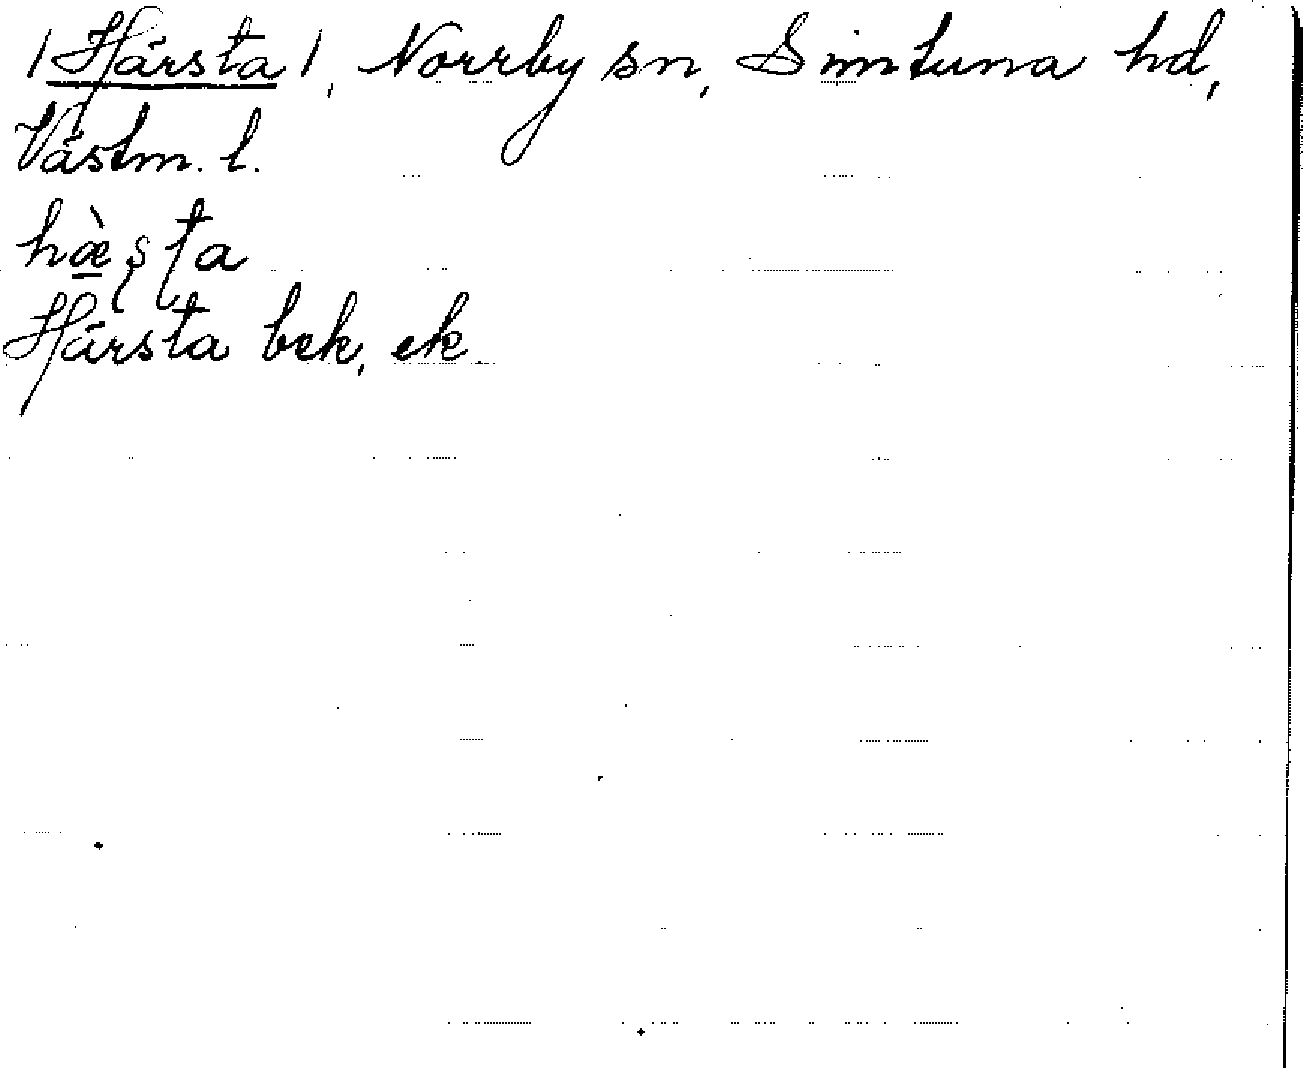 /Härsta/, Norrby sn, Simtuna hd,
Västm. l.
hæ̀ʂʈa
Härsta bek, ek